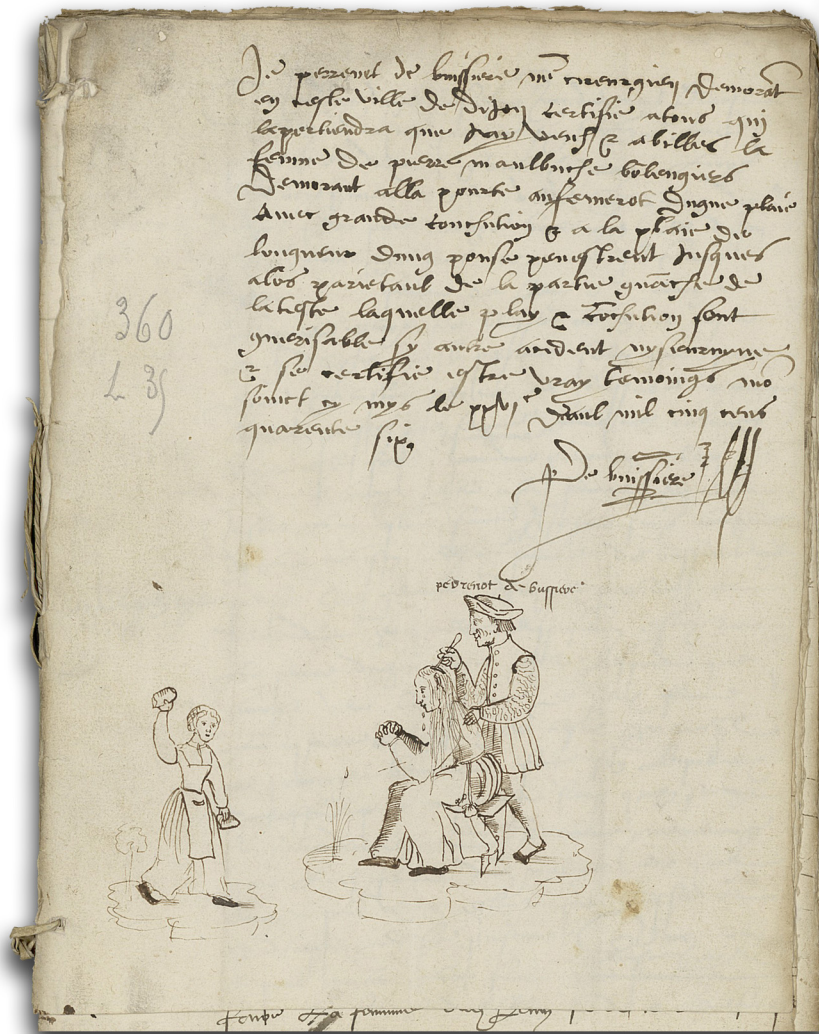 Je perrenot de buissiere me cirurgien demorat
en ceste ville de dijon certifie a tous qui
lapertiendra que Jay veuf & abilles la
femme de pierre maulbuche bolengiers
demorant alla pourte au fermerot dugne plaie
Avec grande conthution & a la plaie du
longueur dung pouse penestrent Jusques
a los parietaul de la partie guauche de
la teste laquelle play & cothution sont
guerisable sy autre acident ny seurvyne
& se certifie estre vray temoings mo
sinet cy mys le xxvi^e daul mil cinq cens
quarente six
P de buissiere
360
L 35
perrenot de bussiere
la femme